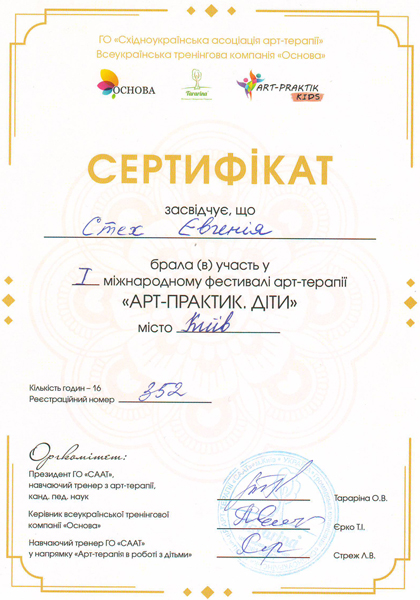 ГО «Східноукраїнська асоціація арт-терапії»
Всеукраїнська тренінгова компанія «Основа»
ОСНОВА
Tararina
ART-PRAKTIK
KIDS
СЕРТИФІКАТ
засвідчує, що
Стех Євгенія
брала (в) участь у
I міжнародному фестивалі арт-терапії
«АРТ-ПРАКТИК. ДІТИ»
місто Київ
Кількість годин – 16
Реєстраційний номер 352
Оргкомітет:
Президент ГО «СААТ»,
навчаючий тренер з арт-терапії,
канд. пед. наук
Тараріна О.В.
Керівник всеукраїнської тренінгової
компанії «Основа»
Єрко Т.І.
Навчаючий тренер ГО «СААТ»
у напрямку «Арт-терапія в роботі з дітьми»
Стреж Л.В.